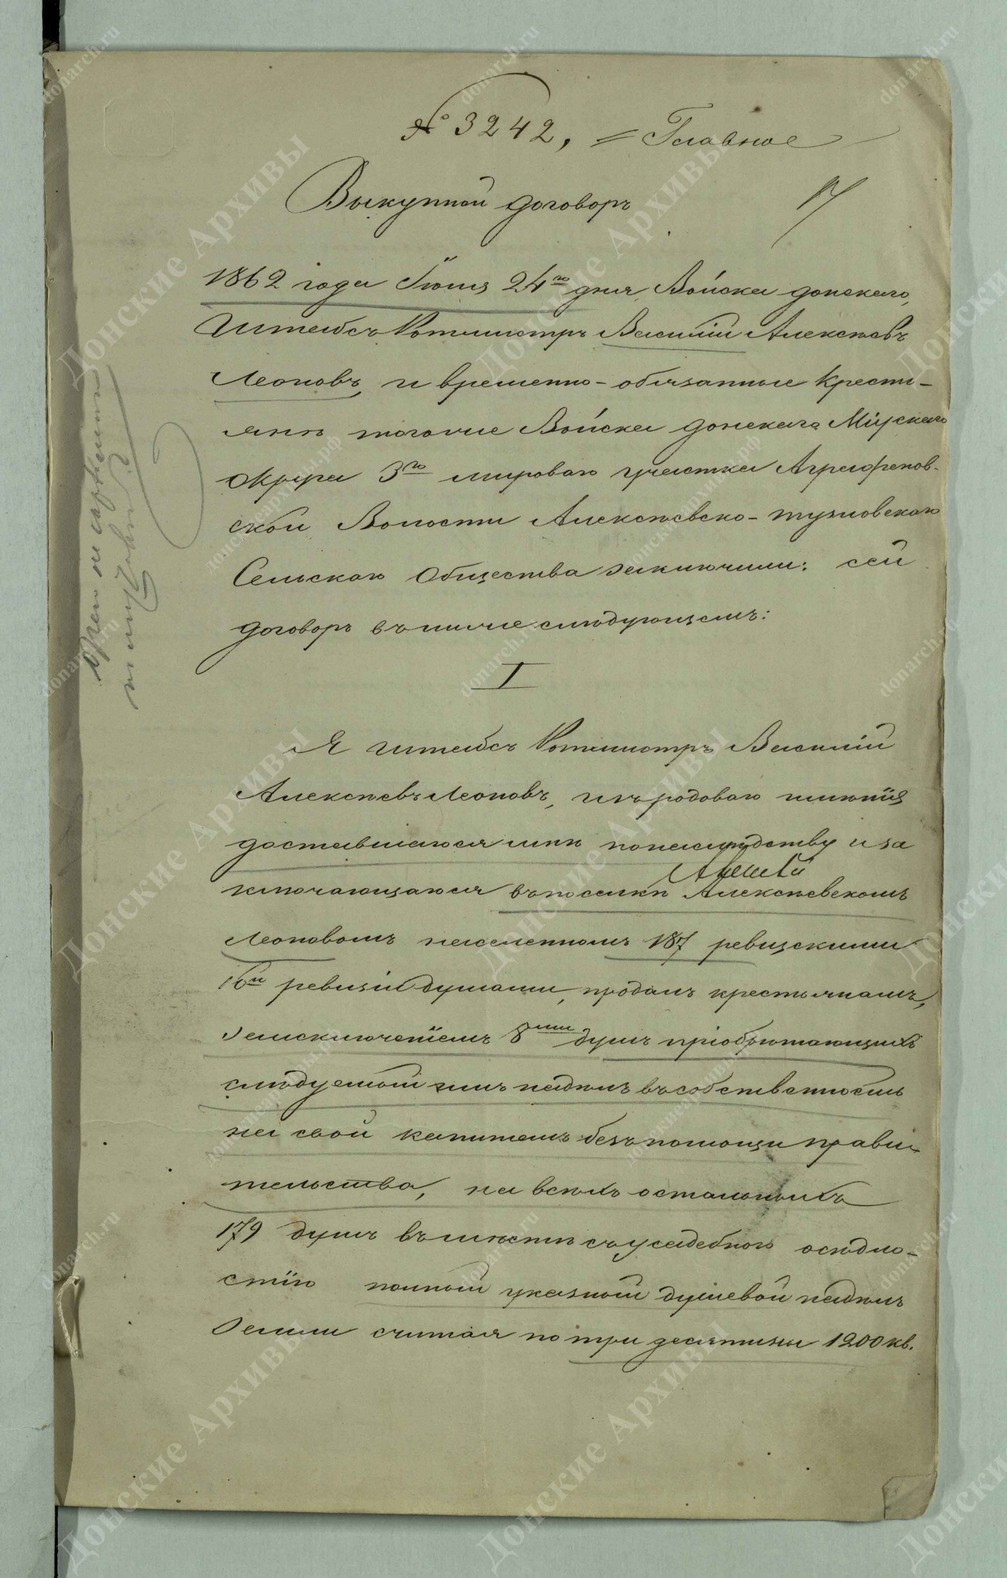 № 3242, = Главное
Выкупной договоръ
17
1862 года Іюня 24го дня, Войска донскаго,
Штабсъ Ротмистръ Василій Алексѣевъ
Леоновъ, и временно-обязанные Кресть-
яне тогоже Войска донскаго Міускаго
Округа 3го мироваго участка Аграфенов-
ской Волости Алексѣевско-тузловскаго
Сельскаго Общества заключили: сей
договоръ въ нижеслѣдующемъ:
I
Я штабсъ Ротмистръ Василій
Алексѣевъ Леоновъ, изъ родоваго имѣнія
доставшагося мнѣ по наслѣдству и за
ключающагося въ поселкѣ Алексѣевскомъ
Леоновомъ населенномъ 187 ревизскими
10й ревизіи душами, продалъ крестьянамъ,
заисключеніемъ 8ми душъ пріобрѣтающихъ
слѣдуемый имъ надѣлъ въ собственность
на свой капиталъ безъ помощи прави-
тельства, на всѣхъ остальныхъ
179 душъ вмѣстѣ съ усадебною осѣдло-
стію полный указный душевой надѣлъ
Земли считая по три десятины 1200 кв.
Донские Архивы
donarch.ru